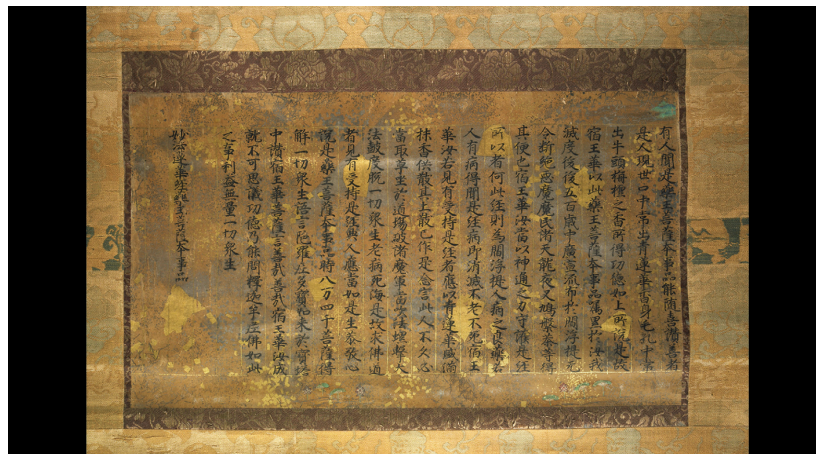 有人聞是藥王菩薩本事品能隨喜讚善者
是人現世口中常出青蓮華香身毛孔中常
出牛頭栴檀之香所得功德如上所說是故
宿王華以此藥王菩薩本事品囑累於汝我
滅度後後五百歲中廣宣流布於閻浮提无
令斷絕惡魔魔民諸天龍夜叉鳩槃荼等得
其便也宿王華汝當以神通之力守護是經
所以者何此經則為閻浮提人病之良藥若
人有病得聞是經病即消滅不老不死宿王
華汝若見有受持是經者應以青蓮華盛滿
抹香供散其上散已作是念言此人不久必
當取草坐於道場破諸魔軍當吹法螺擊大
法鼓度脫一切衆生老病死海是故求佛道
者見有受持是經典人應當如是生恭敬心
說是藥王菩薩本事品時八万四千菩薩得
解一切衆生語言陀羅尼多寶如来於寶塔
中讚宿王華菩薩言善哉善哉宿王華汝成
就不可思議功德乃能問釋迦牟尼佛如此
之事利益無量一切衆生
妙法蓮華經藥王菩薩本事品